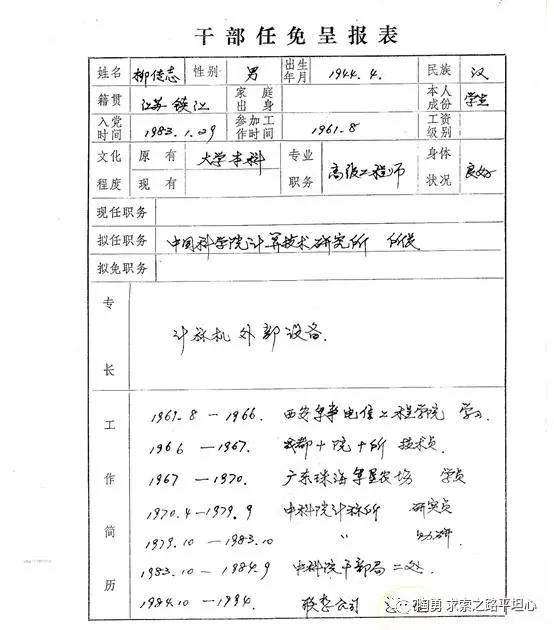 干部任免呈报表
姓名 柳传志 性别 男 出生年月 1944.4. 民族 汉
籍贯 江苏镇江 家庭出身 本人成份 学生
入党时间 1983.1.29 参加工作时间 1961.8 工资级别
文化程度 原有 大学本科 现有 专业职务 高级工程师 身体状况 良好
现任职务
拟任职务 中国科学院计算技术研究所 所长
拟免职务
专长 计祘机外部设备.
工作简历
1961.8 — 1966. 西安军事电信工程学院 学习
1966 — 1967. 成都十院十所 技术员.
1967 — 1970. 广东珠海 农场 学员
1970.4 — 1979.9 中科院计祘所
1979.10 — 1983.10 〃 助研
1983.10 — 1984.9 中科院干部局二处.
1984.10 — 1994. 联想公司
陶勇 求索之路平坦心